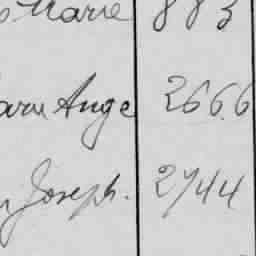 Marie 883
Ange 2666
Joseph. 2744